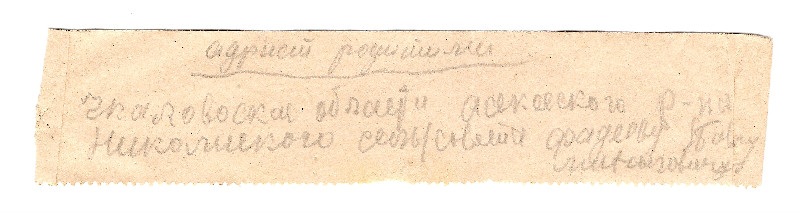 адрист родитили
Чкаловоская области асекаеского р-на
Николиского сель/совета фадееву Павлу